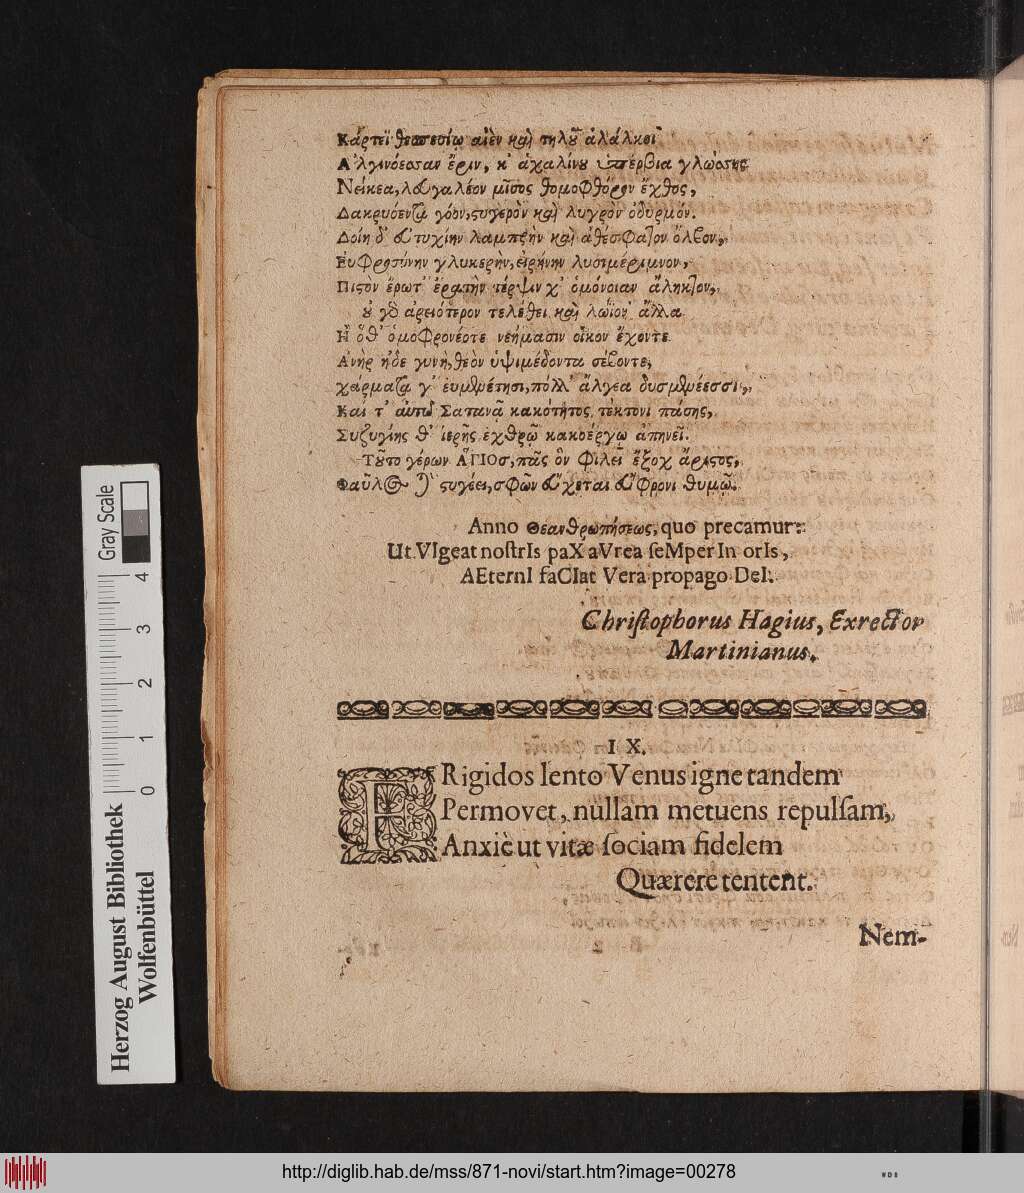 Κάρτεϊ θεσπεσίῳ αἰὲν καὶ τηλοῦ ἀλάλκοι
Ἀλγινόεσσαν ἔριν, κ' ἀχαλίνου ὑπέρβια γλώσσης
Νείκεα, λευγαλέον μῖσος θυμοφθόρον ἔχθος,
Δακρυόεντα γόον, στυγερὸν καὶ λυγρὸν ὀδυρμόν.
Δοίη δ' εὐτυχίην λαμπρὴν καὶ ἀθέσφατον ὄλβον,
Εὐφροσύνην γλυκερὴν, εἰρήνην λυσιμέριμνον,
Πιστὸν ἔρωτ' ἐρατὴν τέρψιν χ' ὁμόνοιαν ἄληκτον,
οὐ γὰρ ἀρειότερον τελέθει καὶ λώϊον ἄλλο
Ἢ ὅθ' ὁμοφρονέοτε νοήμασιν οἶκον ἔχοντε
Ἀνὴρ ἠδὲ γυνὴ, θεὸν ὑψιμέδοντα σέβοντε,
χάρματα γ' εὐμενέτησι, πόλλ' ἄλγεα δυσμενέεσσι,
Καί τ' αὐτῷ Σατανᾷ κακότητος τέκτονι πάσης,
Συζυγίης θ' ἱερῆς ἐχθρῷ κακοέργῳ ἀπηνεῖ.
Τοῦτο γέρων ἍΓΙΟΣ, πᾶς ὃν φιλεῖ ἔξοχ' ἄριστος,
Φαῦλος ὃν στυγέει, σφῶν εὔχεται εὔφρονι θυμῷ.
Anno Θεανθρωπήσεως, quo precamur:
Ut VIgeat noſtrIs paX aVrea ſeMper In orIs,
AEternI faCIat Vera propago DeI.
Chriſtophorus Hagius, Exrector
Martinianus.
IX.
FRigidos lento Venus igne tandem
Permovet, nullam metuens repulſam,
Anxiè ut vitæ ſociam fidelem
Quærere tentent.
Nem-
Herzog August Bibliothek
Wolfenbüttel
0 1 2 3 4
Gray Scale
http://diglib.hab.de/mss/871-novi/start.htm?image=00278